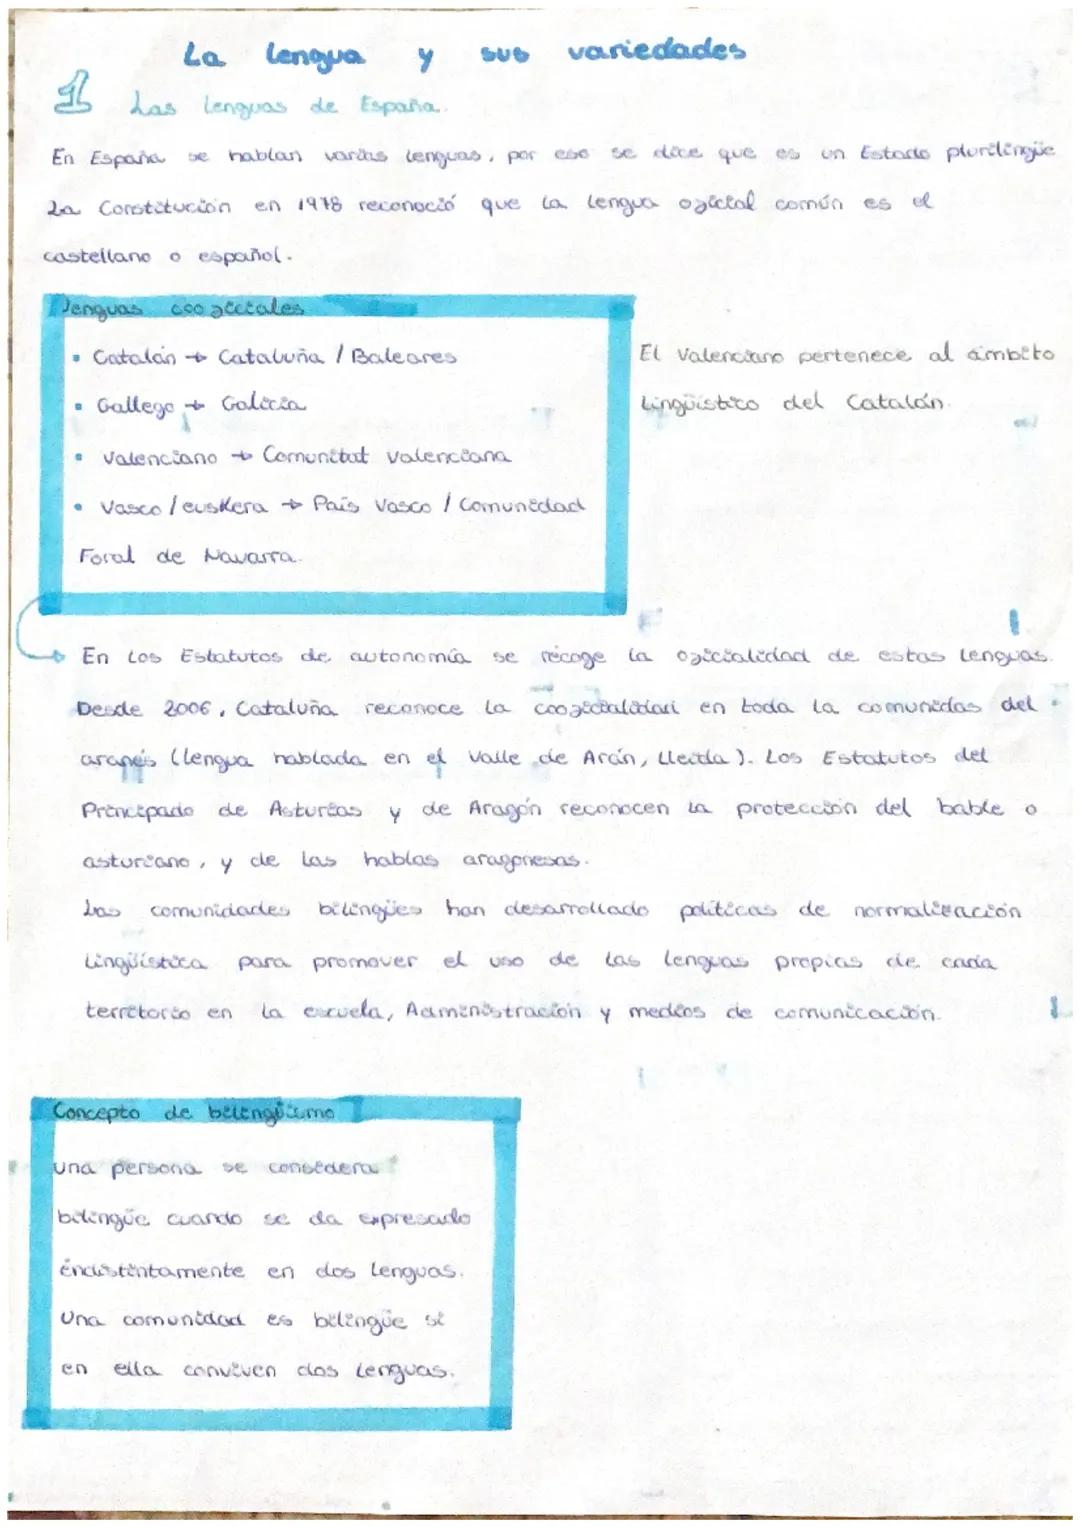 La lengua y sus variedades
1 Las lenguas de España.
En España se hablan varias lenguas, por eso se dice que es un Estado plurilingüe
La Constitución en 1978 reconoció que la lengua oficial común es el
castellano o español.
Lenguas cooficiales
• Catalán → Cataluña / Baleares
• Gallego → Galicia
• Valenciano → Comunitat Valenciana
• Vasco / euskera → País Vasco / Comunidad
Foral de Navarra.
El Valenciano pertenece al ámbito
Lingüístico del Catalán.
→ En los Estatutos de autonomía se recoge la oficialidad de estas lenguas.
Desde 2006, Cataluña reconoce la cooficialidad en toda la comunidas del
aranés (lengua hablada en el Valle de Arán, Lleida). Los Estatutos del
Principado de Asturias y de Aragón reconocen la protección del bable o
asturiano, y de las hablas aragonesas.
Las comunidades bilingües han desarrollado políticas de normalización
Lingüística para promover el uso de las lenguas propias de cada
territorio en la escuela, Administración y medios de comunicación.
Concepto de bilingüismo
Una persona se considera
bilingüe cuando se da expresado
indistintamente en dos lenguas.
Una comunidad es bilingüe si
en ella conviven dos lenguas.